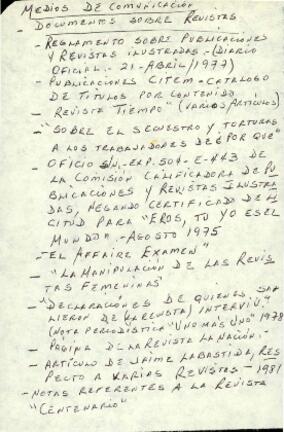 MEDIOS DE COMUNICACION
- DOCUMENTOS SOBRE REVISTAS
- REGLAMENTO SOBRE PUBLICACIONES
Y REVISTAS ILUSTRADAS.- (DIARIO
OFICIAL.- 21-ABRIL/1977)
- PUBLICACIONES CITEM - CATALOGO
DE TITULOS POR CONTENIDO
- REVISTA TIEMPO" (VARIOS ARTICULOS)
- "SOBRE EL SECUESTRO Y TORTURAS
A LOS TRABAJADORES DE ¿POR QUE"
- OFICIO S/N.- EXP. 504- E-443 DE
LA COMISIÓN CALIFICADORA DE PU-
BLICACIONES Y REVISTAS ILUSTRA-
DAS, NEGANDO CERTIFICADO DE LI-
CITUD PARA "EROS, TU YO ES EL
MUNDO" -AGOSTO 1975
- "EL AFFAIRE EXAMEN"
- "LA MANIPULACION DE LAS REVIS-
TAS FEMENINAS
- "DECLARACIONES DE QUIENES SA-
LIERON DE LA REVISTA) INTERVIU."
(NOTA PERIODISTICA "UNO MAS UNO" 1978
- PÁGINA DE LA REVISTA LA NACIÓN.-
- ARTÍCULO DE JAIME LABASTIDA, RES-
PECTO A VARIAS REVISTAS - 1981
- NOTAS REFERENTES A LA REVISTA
"CENTENARIO"